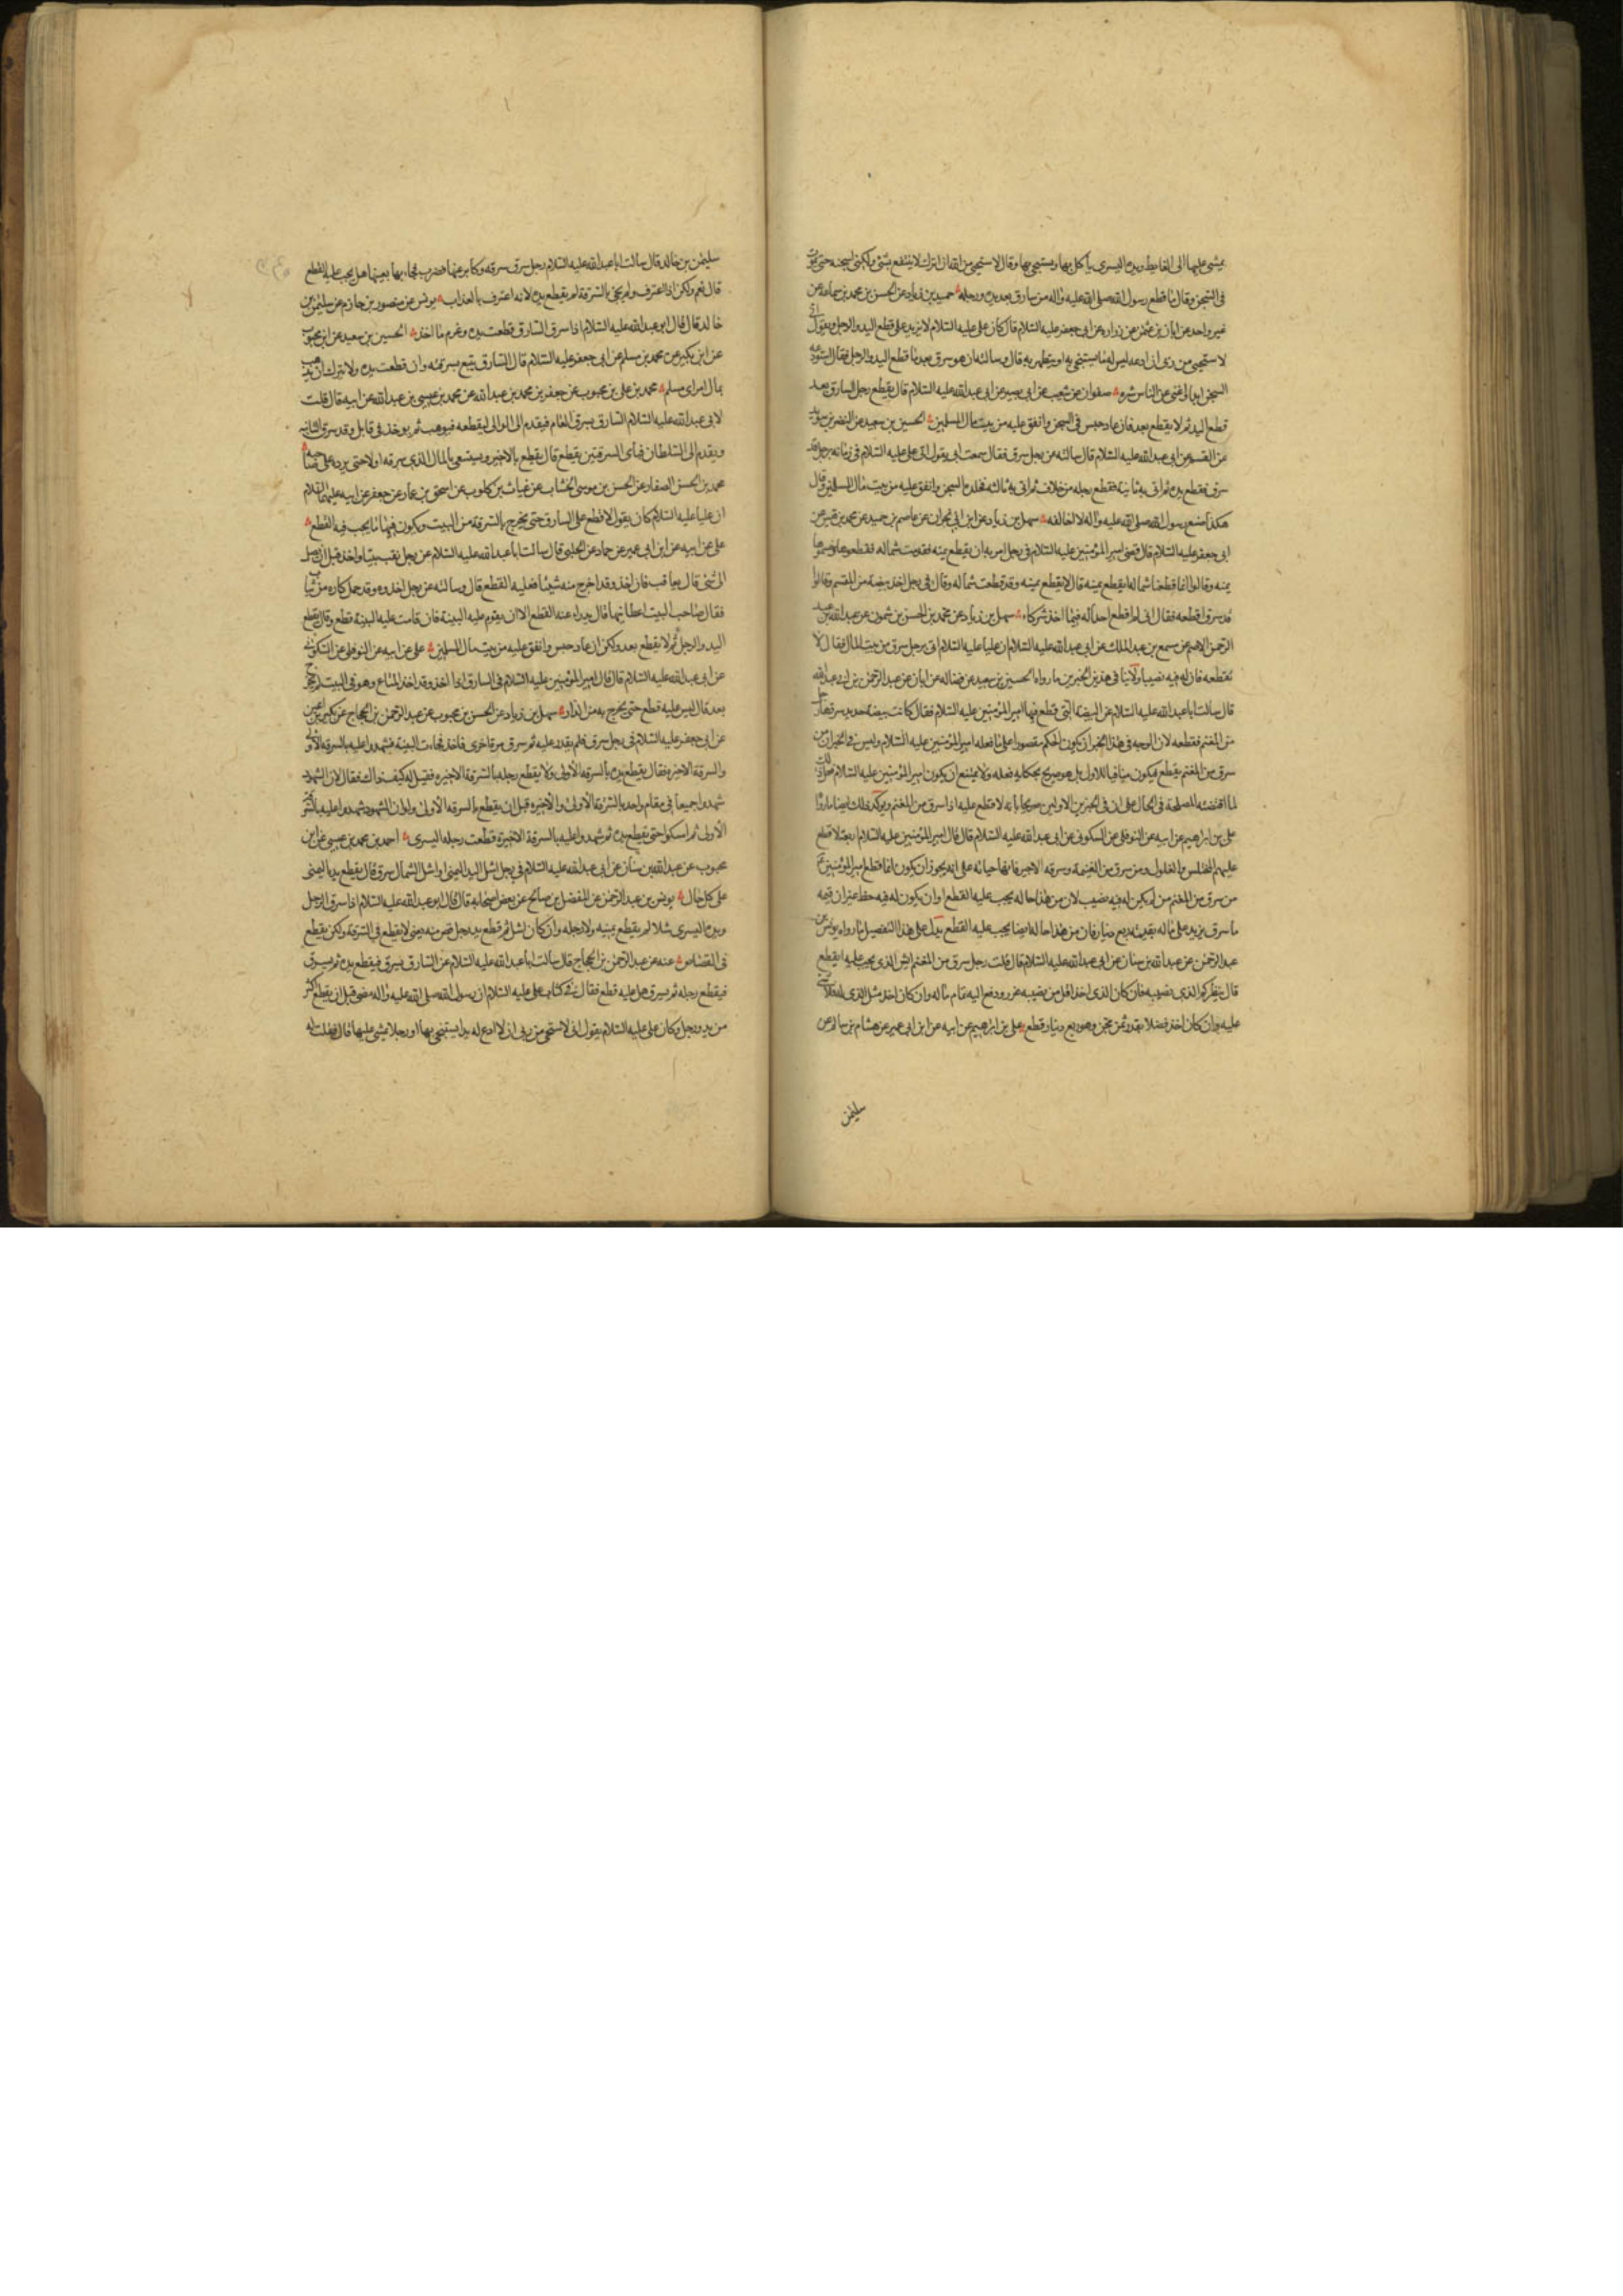 يمشي عليها الى الغايط ويده اليسرى يأكل بها ويستنجي بها وقال لاستحيي من الله ان اتركه لا ينتفع بشئ ولكني اسجنه حتى يموت
في السجن وقال ما قطع رسول الله صلى الله عليه وآله من سارق بعد يده ورجله حميد بن زياد عن الحسن بن محمد بن سماعة عن
غير واحد عن ابان بن عثمن عن زراره عن ابي جعفر عليه السلام قال كان علي عليه السلام لا يزيد على قطع اليد والرجل ويقول اني
لاستحيي من ربي ان ادعه ليس له ما يستنجي به او يتطهر به قال وسالته ان هو سرق بعد ما قطع اليد والرجل فقال استودعه
السجن ابدا واغنى عن الناس شره صفوان عن شعيب عن ابي بصير عن ابي عبد الله عليه السلام قال يقطع رجل السارق بعد
قطع اليد ثم لا يقطع بعد فان عاد حبس في السجن وانفق عليه من بيت مال المسلمين الحسين بن سعيد عن النضر بن سويد
عن القسم عن ابي عبد الله عليه السلام قال سالته عن رجل سرق فقال سمعت ابي يقول اتي علي عليه السلام في زمانه برجل قد
سرق فقطع يده ثم اتي به ثانية فقطع رجله من خلاف ثم اتي به ثالثه فخلده السجن وانفق عليه من بيت مال المسلمين وقال
هكذا صنع رسول الله صلى الله عليه وآله لا اخالفه سهل بن زياد عن ابن ابي نجران عن عاصم بن حميد عن محمد بن قيس عن
ابي جعفر عليه السلام قال قضى امير المؤمنين عليه السلام في رجل امر به ان يقطع يمينه فقدمت شماله فقطعوها وحسبوها
يمينه وقالوا انما قطعنا شماله ايقطع يمينه قال لا يقطع يمينه وقد قطعت شماله وقال في رجل اخذ بيضة من المقسم وقالوا
قد سرق اقطعه فقال اني لم اقطع احدا له فيما اخذ شركاء سهل بن زياد عن محمد بن الحسن بن شمون عن عبد الله بن عبد
الرحمن الاصم عن مسمع بن عبد الملك عن ابي عبد الله عليه السلام ان عليا عليه السلام اتي برجل سرق من بيت المال فقال لا
تقطعه فان له فيه نصيبا ولا ينافي هذين الخبرين ما رواه الحسين بن سعيد عن فضاله عن ابان عن عبد الرحمن بن ابي عبد الله
قال سالت ابا عبد الله عليه السلام عن البيضه التي قطع فيها امير المؤمنين عليه السلام فقال كانت بيضة حديد سرقها رجل
من المغنم فقطعه لان الوجه في هذا الخبر ان يكون الحكم مقصورا على ما فعله امير المؤمنين عليه السلام وليس في الخبر ان من
سرق من المغنم يقطع فيكون منافيا للاول بل هو صريح بحكايه فعله ولا يمتنع ان يكون امير المؤمنين عليه السلام فعل ذلك
لما اقتضته المصلحة في الحال على ان في الخبرين الاولين صريحا بانه لا قطع عليه اذا سرق من المغنم ويؤكد ذلك ايضا ما رواه
علي بن ابرهيم عن ابيه عن النوفلي عن السكوني عن ابي عبد الله عليه السلام قال قال امير المؤمنين عليه السلام اربعة لا قطع
عليهم المختلس والغلول ومن سرق من الغنيمة وسرقه الاجير فانها خيانة على انه يجوز ان يكون انما قطع امير المؤمنين ع
من سرق من المغنم من لم يكن له فيه نصيب لان من هذا حاله يجب عليه القطع او ان يكون له فيه حظ غير ان قيمه
ما سرق يزيد على ماله بقيمة ربع دينار فان من هذا حاله ايضا يجب عليه القطع يدل على هذا التفصيل ما رواه يونس بن
عبد الرحمن عن عبد الله بن سنان عن ابي عبد الله عليه السلام قال قلت رجل سرق من المغنم ايش الذي يجب عليه ايقطع
قال ينظر كم الذي نصيبه فان كان الذي اخذ اقل من نصيبه عزر ودفع اليه تمام ماله وان كان اخذ مثل الذي له فلا شئ
عليه وان كان اخذ فضلا بقدر ثمن مجن وهو ربع دينار قطع علي بن ابرهيم عن ابيه عن ابن ابي عمير عن هشام بن سالم عن
سليمن
سليمن بن خالد قال سالت ابا عبد الله عليه السلام رجل سرق سرقه وكابر عنها فضرب فجاء بها بعينها هل يجب عليه القطع
قال نعم ولكن اذا اعترف ولم يجئ بالسرقة لم يقطع يده لانه اعترف بالعذاب يونس عن منصور بن حازم عن سليمن بن
خالد قال قال ابو عبد الله عليه السلام اذا سرق السارق قطعت يده وغرم ما اخذ الحسين بن سعيد عن ابن محبوب
عن ابن بكير عن محمد بن مسلم عن ابي جعفر عليه السلام قال السارق يتبع بسرقته وان قطعت يده ولا يترك ان يذهب
بمال امرئ مسلم محمد بن علي بن محبوب عن جعفر بن محمد بن عبد الله عن محمد بن عيسى بن عبد الله عن ابيه قال قلت
لابي عبد الله عليه السلام السارق يسرق العام فيقدم الى الوالي ليقطعه فيوهب ثم يوخذ في قابل وقد سرق الثانيه
ويقدم الى السلطان فبأي السرقتين يقطع قال يقطع بالاخير ويستسعى بالمال الذي سرقه اولا حتى يرده على صاحبه
محمد بن الحسن الصفار عن الحسن بن موسى الخشاب عن غياث بن كلوب عن اسحق بن عمار عن جعفر عن ابيه عليهما السلام
ان عليا عليه السلام كان يقول لا قطع على السارق حتى يخرج بالسرقة من البيت ويكون فيها ما يجب فيه القطع
علي عن ابيه عن ابن ابي عمير عن حماد عن الحلبي قال سالت ابا عبد الله عليه السلام عن رجل نقب بيتا واخذ قبل ان يصل
الى شئ قال يعاقب فان اخذ وقد اخرج منه شيئا فعليه القطع قال وسالته عن رجل اخذوه وقد حمل كاره من ثياب
فقال صاحب البيت اعطانيها قال يدراء عنه القطع الا ان يقوم عليه البينة فان قامت عليه البينة قطع وقال يقطع
اليد والرجل ثم لا يقطع بعد ولكن ان عاد حبس وانفق عليه من بيت مال المسلمين علي عن ابيه عن النوفلي عن السكوني
عن ابي عبد الله عليه السلام قال قال امير المؤمنين عليه السلام في السارق اذا اخذ وقد اخذ المتاع وهو في البيت لم يخرج
بعد قال ليس عليه قطع حتى يخرج به من الدار سهل بن زياد عن الحسن بن محبوب عن عبد الرحمن بن الحجاج عن بكير بن اعين
عن ابي جعفر عليه السلام في رجل سرق فلم يقدر عليه ثم سرق مرة اخرى فاخذ فجاءت البينة فشهدوا عليه بالسرقه الاولى
والسرقة الاخيره فقال يقطع يده بالسرقه الاولى ولا يقطع رجله بالسرقة الاخيره فقيل له كيف ذاك فقال لان الشهود
شهدوا جميعا في مقام واحد بالسرقة الاولى والاخيره قبل ان يقطع بالسرقه الاولى ولو ان الشهود شهدوا عليه بالسرقة
الاولى ثم امسكوا حتى يقطع يده ثم شهدوا عليه بالسرقة الاخيرة قطعت رجله اليسرى احمد بن محمد بن عيسى عن ابن
محبوب عن عبد الله بن سنان عن ابي عبد الله عليه السلام في رجل اشل اليد اليمنى او اشل الشمال سرق قال يقطع يده اليمنى
على كل حال يونس بن عبد الرحمن عن المفضل بن صالح عن بعض اصحابه قال قال ابو عبد الله عليه السلام اذا سرق الرجل
ويده اليسرى شلا لم يقطع يمينه ولا رجله وان كان اشل ثم قطع يد رجل قص منه يعني لا يقطع في السرقة ولكن يقطع
في القصاص عنه عن عبد الرحمن بن الحجاج قال سالت ابا عبد الله عليه السلام عن السارق يسرق فيقطع يده ثم يسرق
فيقطع رجله ثم يسرق هل عليه قطع فقال في كتاب علي عليه السلام ان رسول الله صلى الله عليه وآله مضى قبل ان يقطع اكثر
من يد ورجل وكان علي عليه السلام يقول اني لاستحي من ربي ان لا ادع له يدا يستنجي بها او رجلا يمشي عليها قال فقلت له